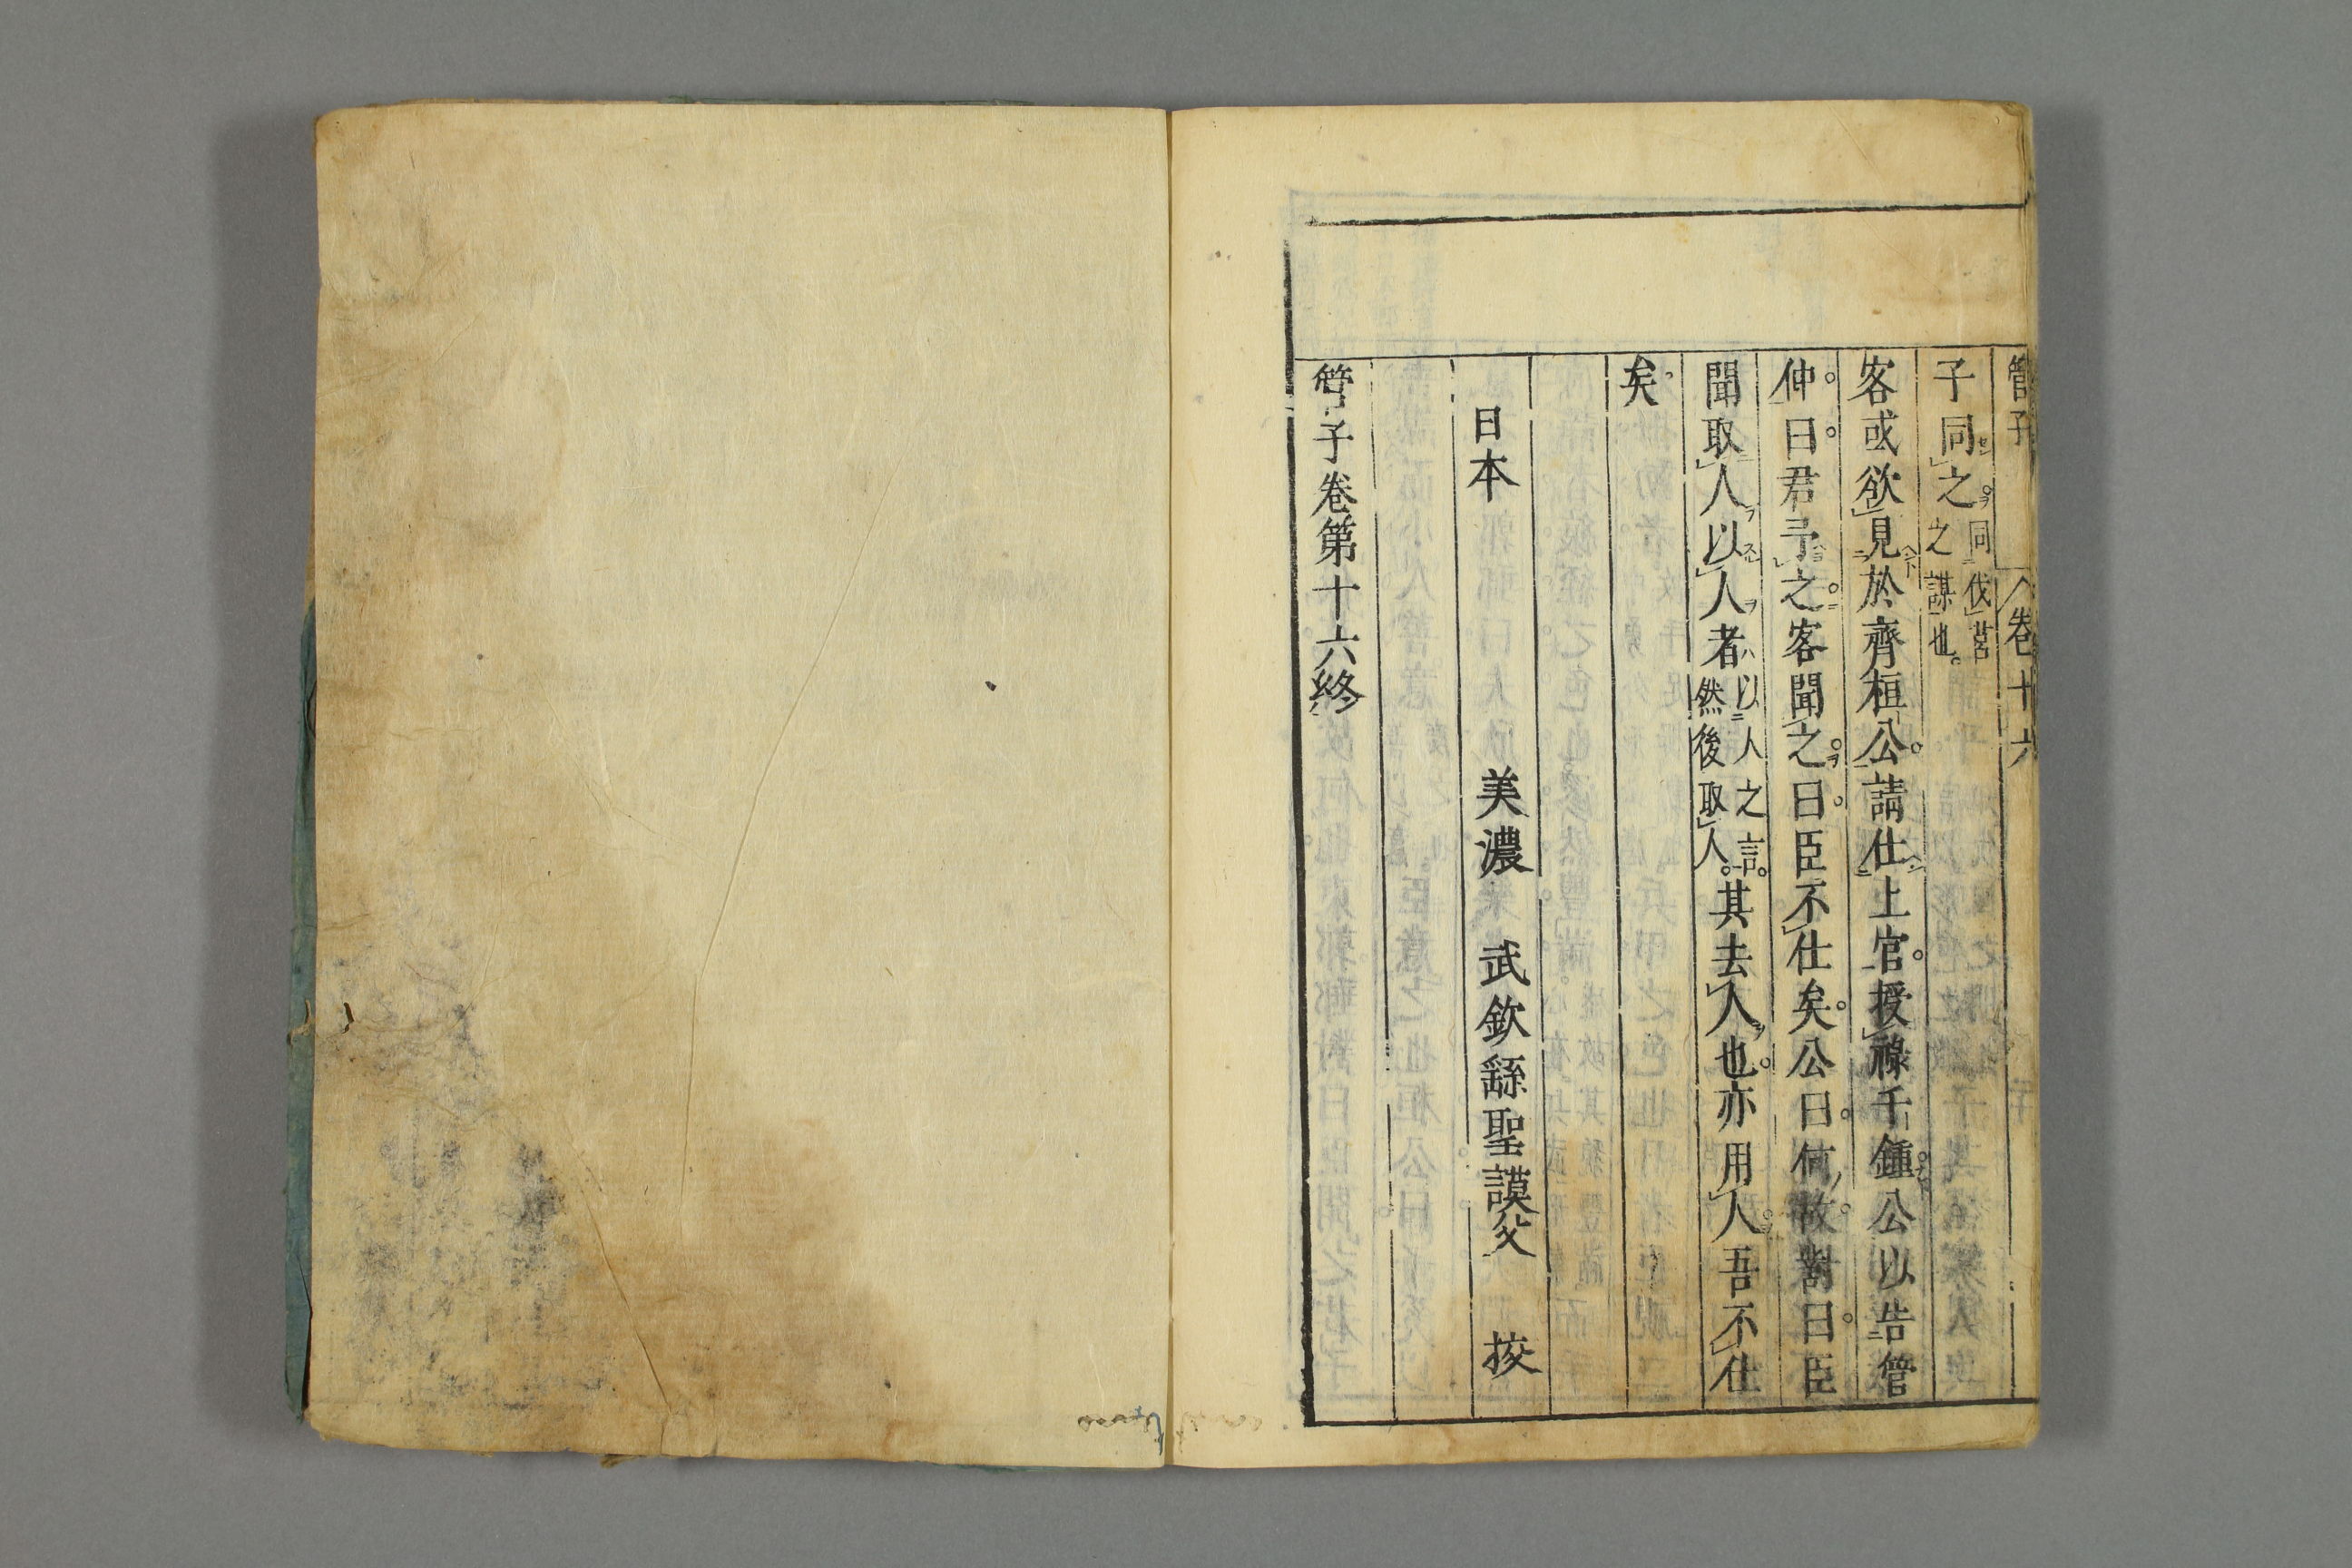 管子 卷十六
子同之。同伐莒之謀也。
客或欲見於齊桓公。請仕上官。授祿千鍾。公以告管
仲。曰。君予之。客聞之。曰。臣不仕矣。公曰。何故。對曰。臣
聞取人以人者以人之言。然後取人。其去人也。亦用人。吾不仕
矣。
日本 美濃 武欽繇聖謨父 挍
管子卷第十六終